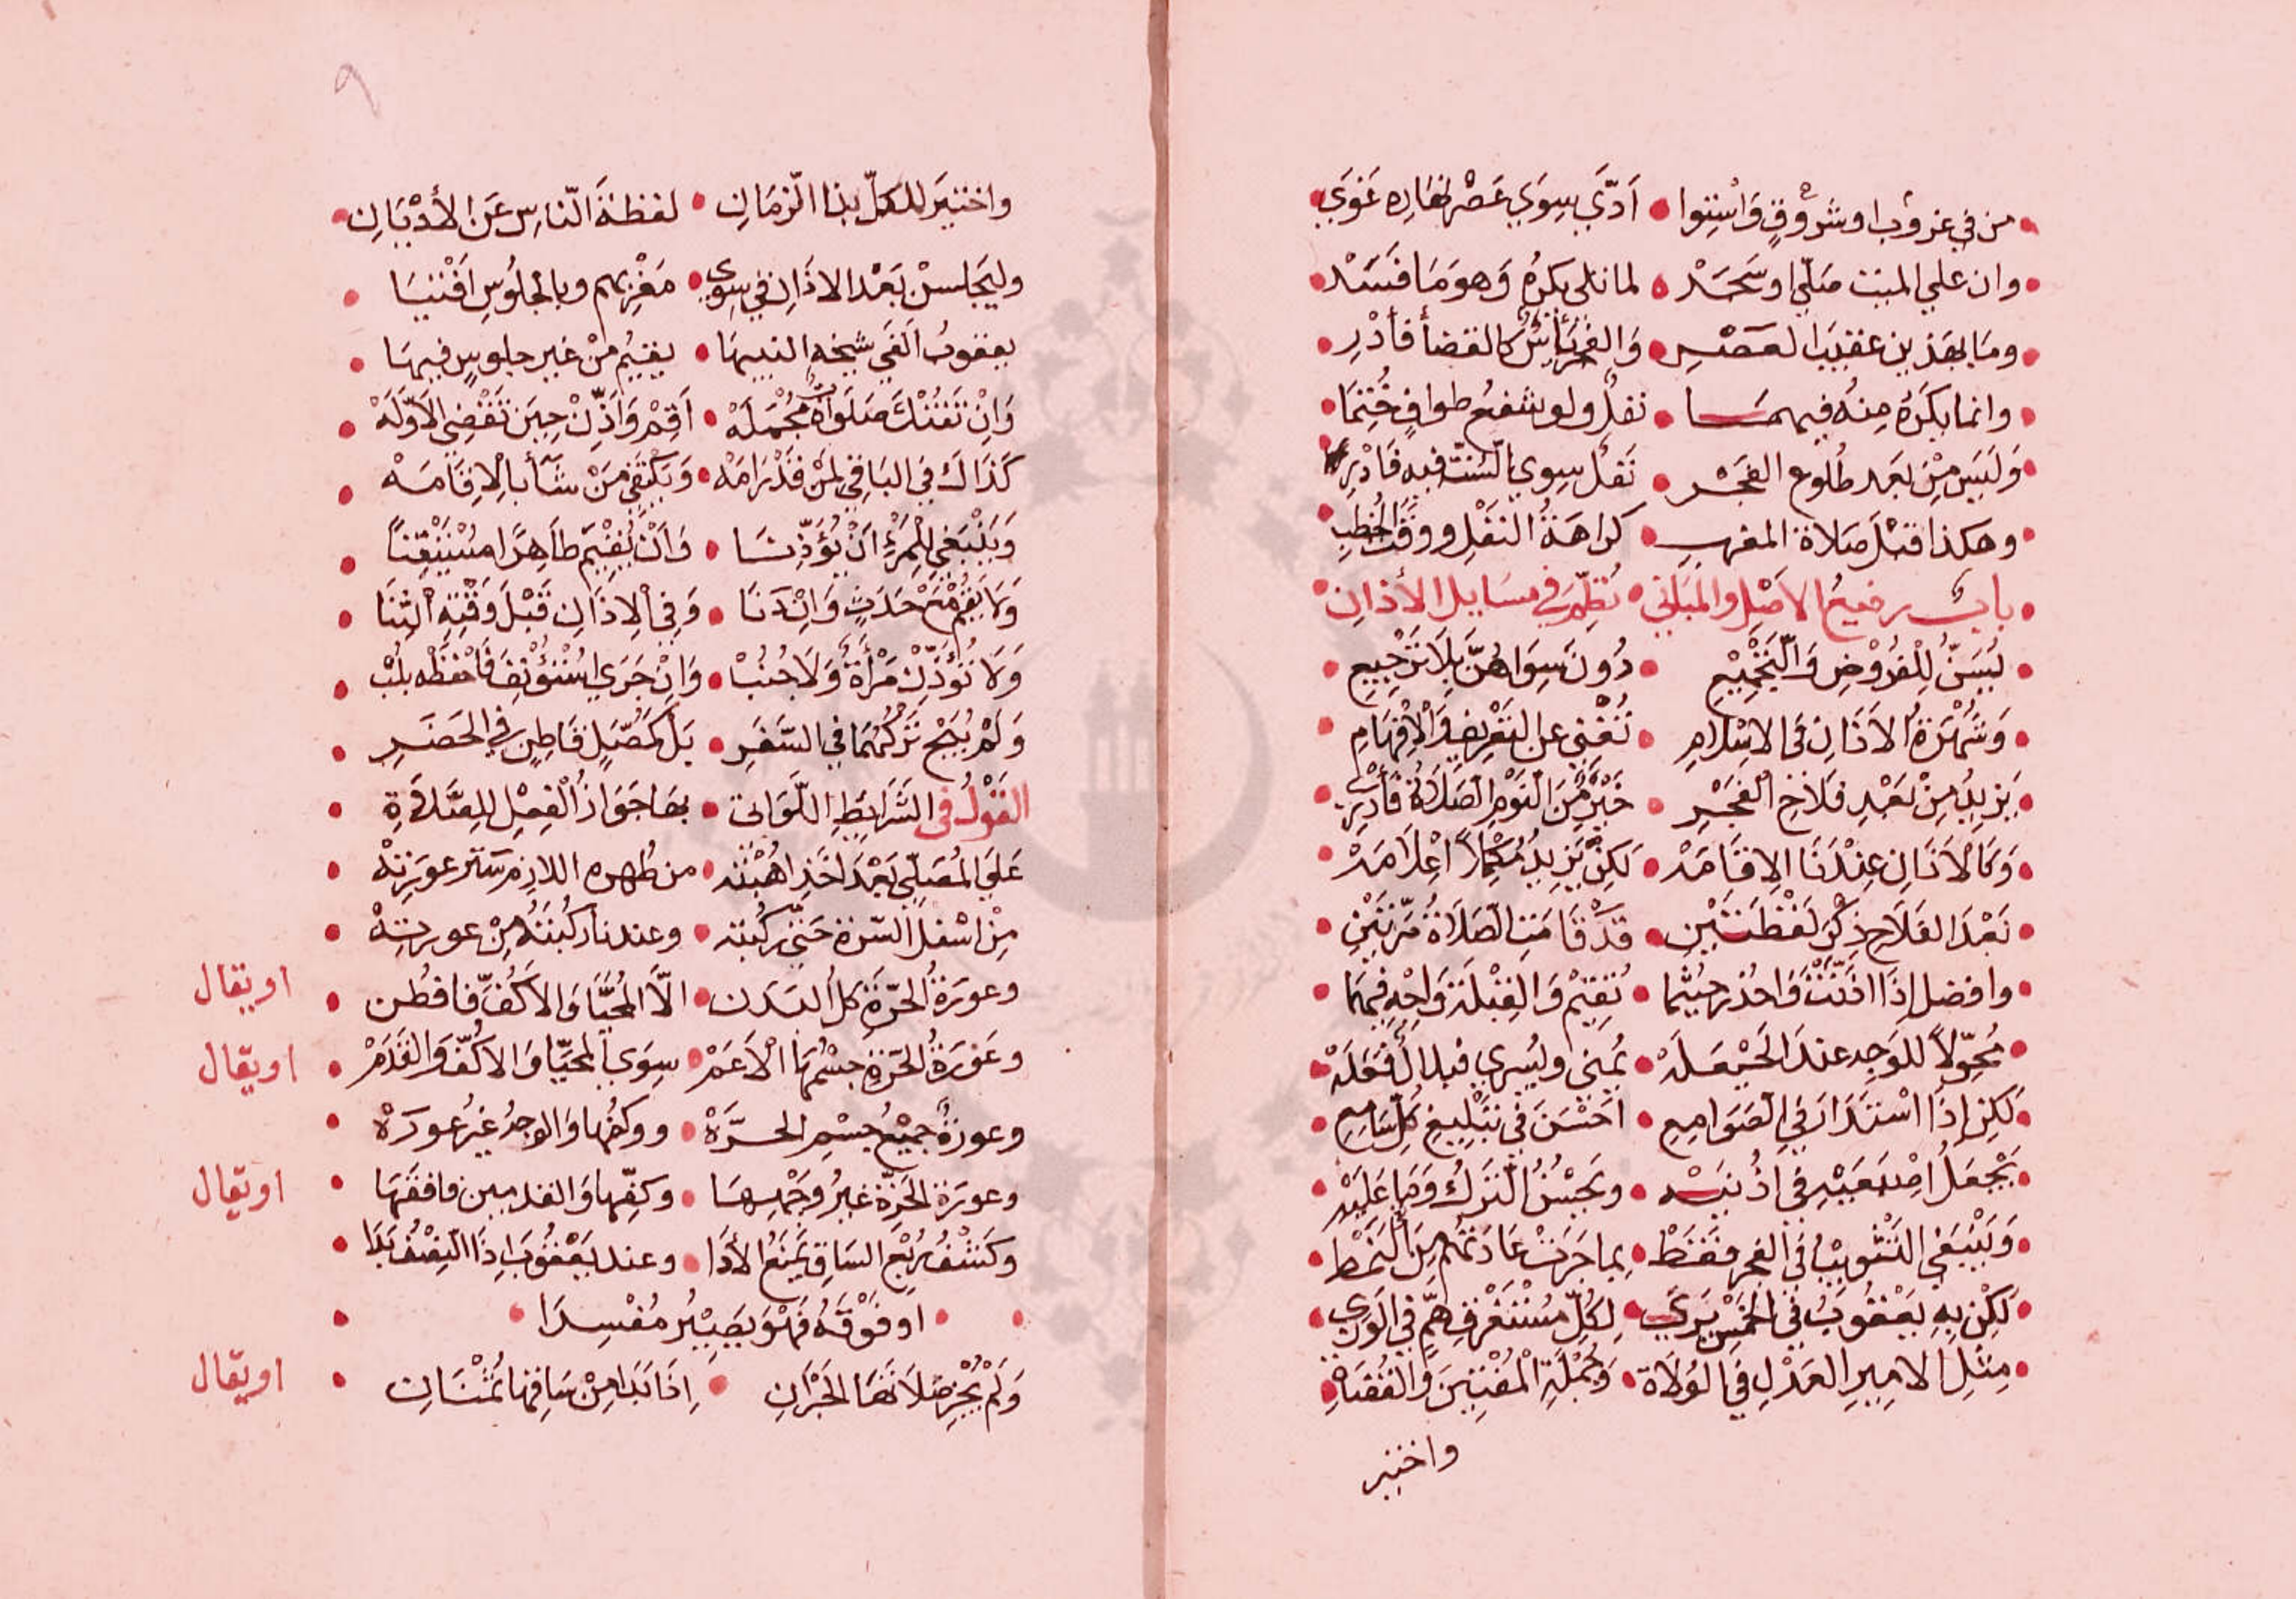 من في غروب او شروق واستوا • ادّي سوي عصر نهاره غوي
وان علي الميت صلّي او سجد • لما تلي يكره وهو ما فسد
وما بهذين عقيب العصر • والفرايس كالقضا فأدر
وانما يكره منه فيهما • نفل ولو شفع طواف ختما
وليس من بعد طلوع الفجر • نفل سوي السنت فيه فادر
وهكذا قبل صلاة المغرب • كراهة النفل ووقت الخطب
باب رفيع الاصل والمباني • نظم في مسايل الأذان
يسن للفروض والتجميع • دون سواهن بلا ترجيع
وشهرة الاذان في الاسلام • تغني عن التعريف والافهام
يزيد من بعد فلاح الفجر • خير من النوم الصلاة فأدر
وكالاذان عندنا الاقامه • لكن يزيد مكملا اعلامه
بعد الفلاح ذكر لفظتين • قد قامت الصلاة مرتين
وافصل اذا اذنت واحذر حيثما • تقيم والقبلة واجه فيهما
محوّلا للوجه عند الحيعله • يمني ويسري فبلال فعله
لكن اذا استدار في الصوامع • احسن في تبليغ كل سامع
يجعل اصبعيه في اذنيه • ويحسن الترك وما عليه
وينبغي التثويب في الفجر فقط • بما جرت عادتهم من النمط
لكن به يعقوب في الخمس يري • لكل مستغرق هم في الوري
مثل الامير العدل في الولاة • وجملة المفتين والقضاة
واختير
٩
واختير للكل بذا الزمان • لغفلة الناس عن الأديان
وليجلسن بعد الاذان في سوي • مغربهم وبالجلوس افتيا
يعقوب الفي شيخه النبيها • يقيم من غير جلوس فيها
وان تفتك صلوات مجمله • اقم واذن حين تقضي الاوله
كذاك في الباقي لمن قد رامه • ويكتفي من شأ بالاقامه
وينبغي للمرء ان يؤذنا • وان يقيم طاهرا مستيقنا
ولا يقم مع حدث وان دنا • وفي الاذان قبل وقته الثنا
ولا تؤذن مرأة ولا جنب • وان جري استؤنف فاحفظه بلب
ولم يبح تركهما في السفر • بل لمصل قاطن في الحضر
القول في الشرايط اللواتي • بها جواز الفعل للصلاة
علي المصلي بعد اخذ اهبته • من طهره اللازم ستر عورته
من اسفل السرة حتي ركبته • وعندنا ركبته من عورته
وعورة الحرة كل البدن • الا المحيا والاكف فافطن
اويقال
وعورة الحرة جسمها الاعم • سوي المحيا والاكف والقدم
اويقال
وعورة جميع جسم الحره • وكفها والوجه غير عوره
وعورة الحرة غير وجهها • وكفها والقدمين فافقها
اويقال
وكشف ربع الساق يمنع الأدا • وعند يعقوب اذا النصف بدا
• او فوقه فهو يصير مفسدا •
ولم يجز صلاتها الحبران • اذا بدا من ساقها ثمنان
اويقال